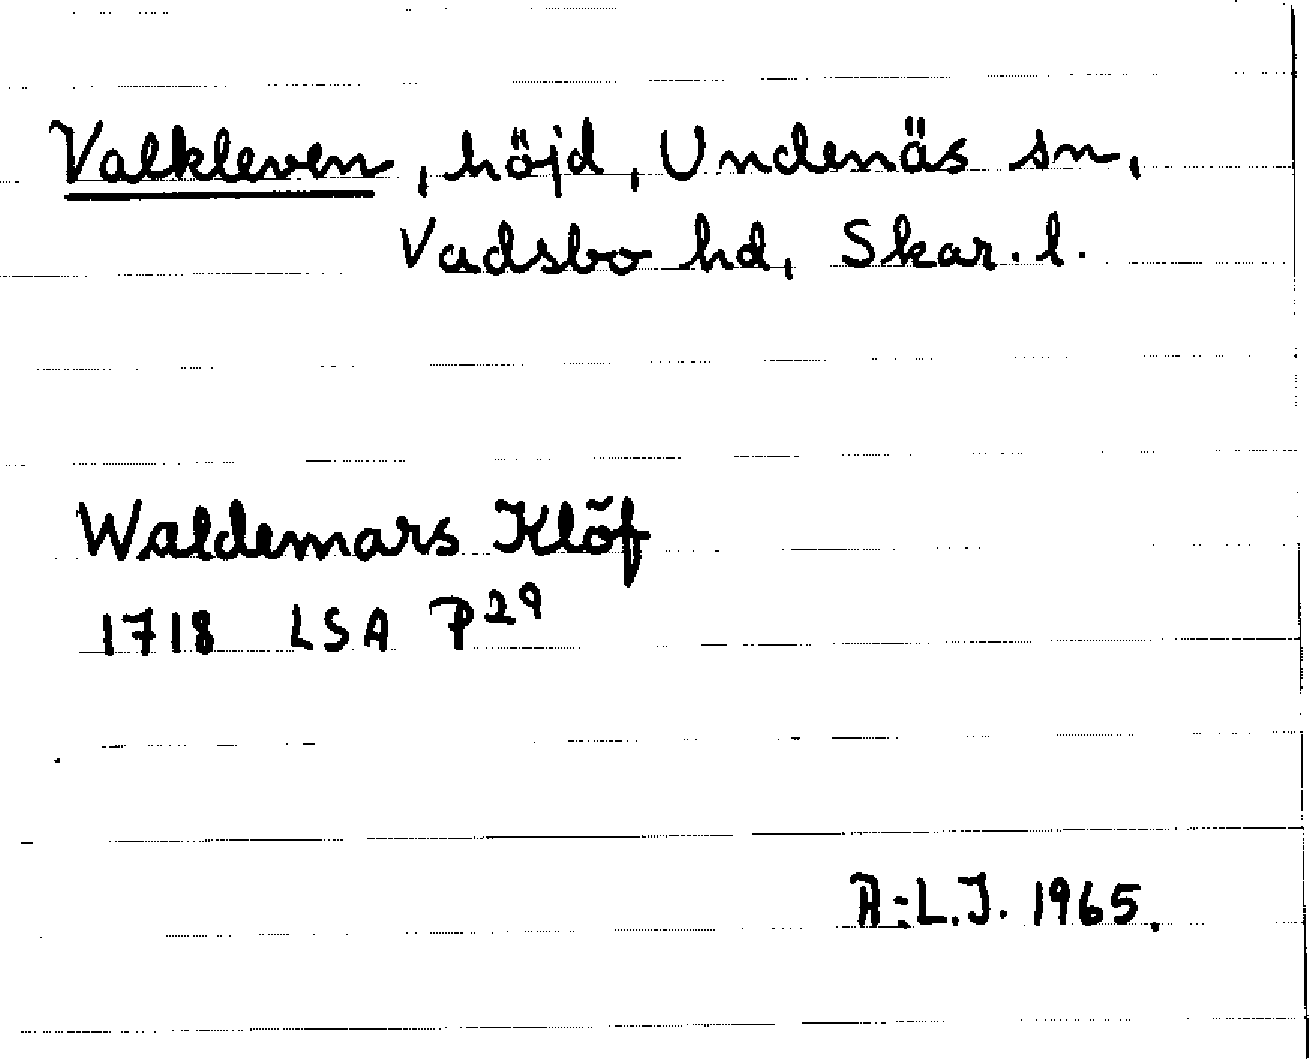 Valkleven, höjd, Undenäs sn,
Vadsbo hd, Skar. l.
Waldemars Klöf
1718 LSA P29
A:L.J. 1965.